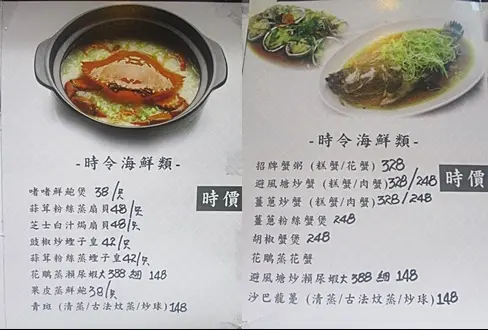 -時令海鮮類-
時價
嗜嗜鮮鮑煲 38/只
蒜茸粉絲蒸扇貝 48/只
芝士白汁焗扇貝 48/只
豉椒炒蟶子皇 42/只
蒜茸粉絲蒸蟶子皇 42/只
花雕蒸瀨尿蝦 大388 細 148
果皮蒸鮮鮑 38/只
青斑 (清蒸/古法炆蒸/炒球) 148
-時令海鮮類-
時價
招牌蟹粥 (糕蟹/花蟹) 328
避風塘炒蟹 (糕蟹/肉蟹) 328/248
薑蔥炒蟹 (糕蟹/肉蟹) 328/248
薑蔥粉絲蟹煲 248
胡椒蟹煲 248
花雕蒸花蟹
避風塘炒瀨尿蝦 大388 細 148
沙巴龍躉 (清蒸/古法炆蒸/炒球) 148